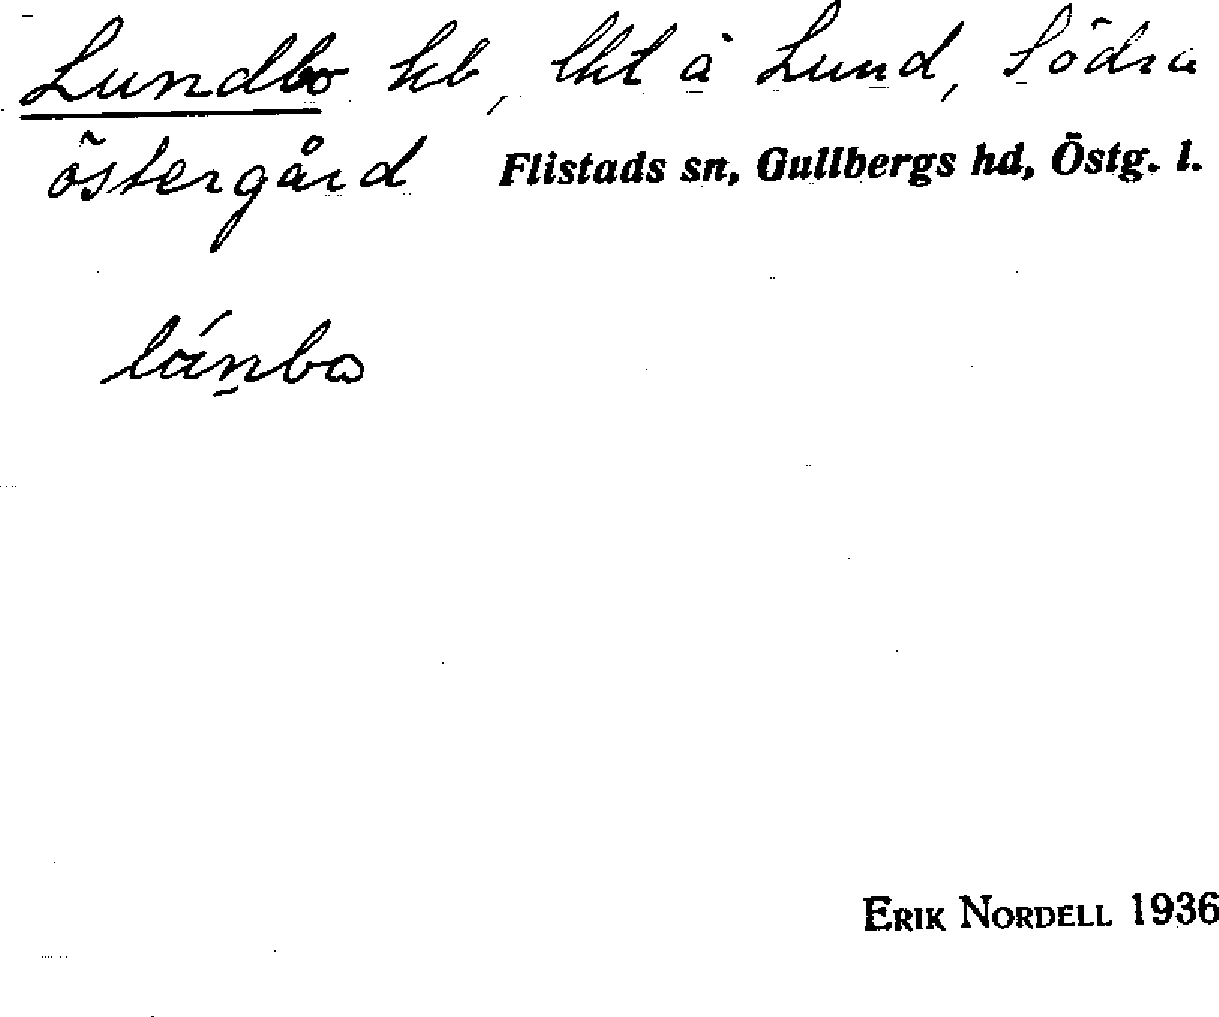 Lundbo hb, lht å Lund, Södra
östergård Flistads sn, Gullbergs hd, Östg. l.
lánbo
ERIK NORDELL 1936